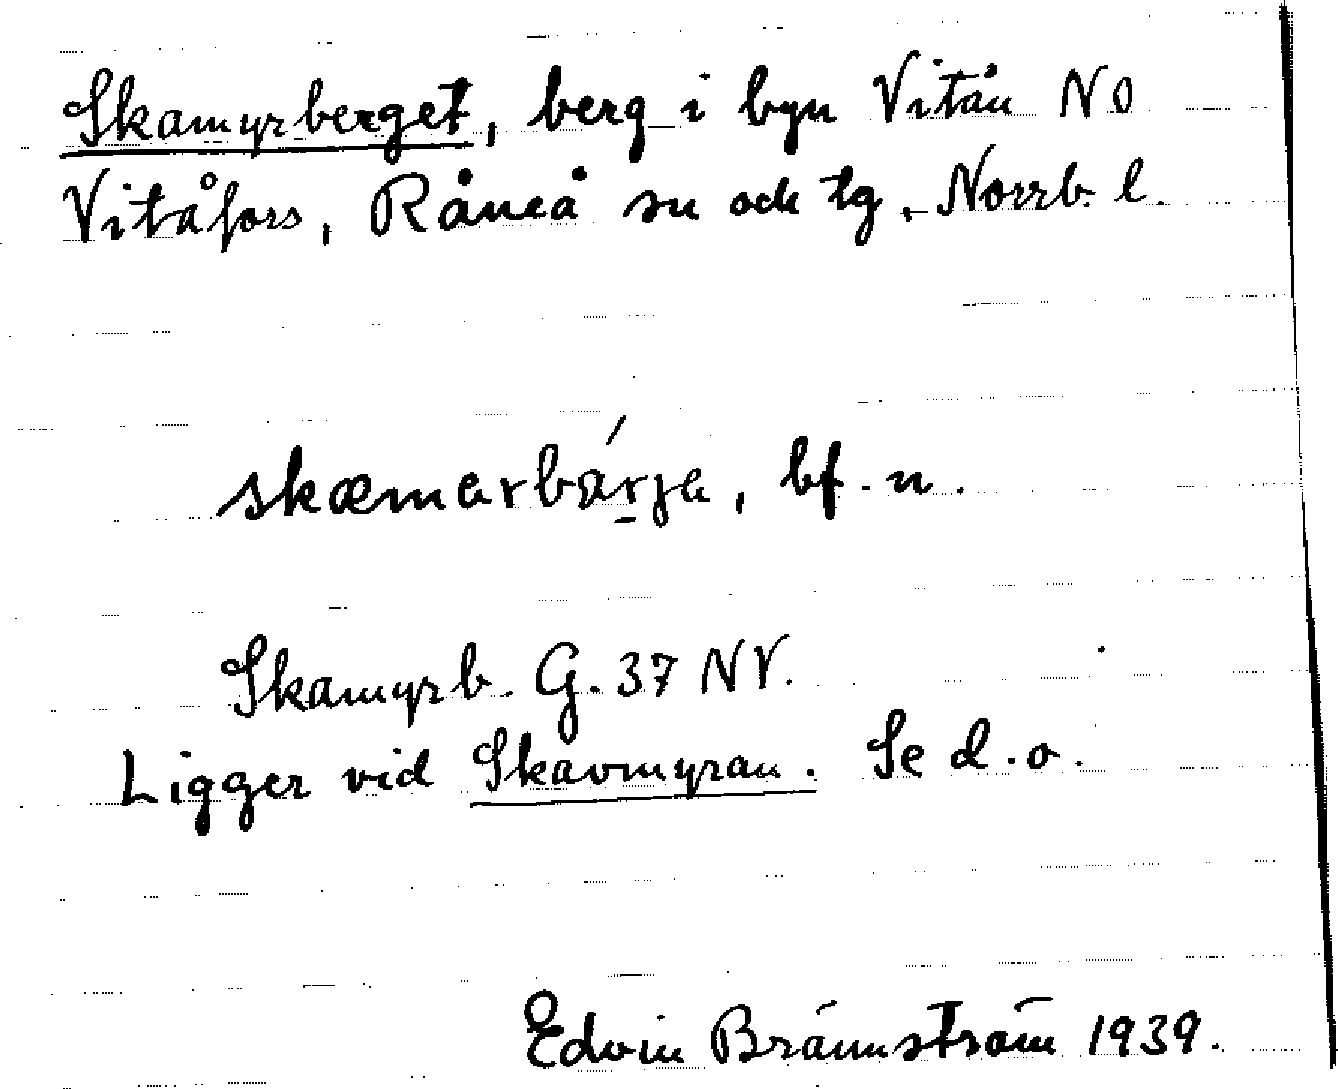 Skamyrberget, berg i byn Vitån NO
Vitåfors, Råneå sn och tg, Norrb. l.
skæmarbárja, bf. n.
Skamyrb. G. 37 NV.
Ligger vid Skavmyran. Se d. o.
Edvin Brännström 1939.